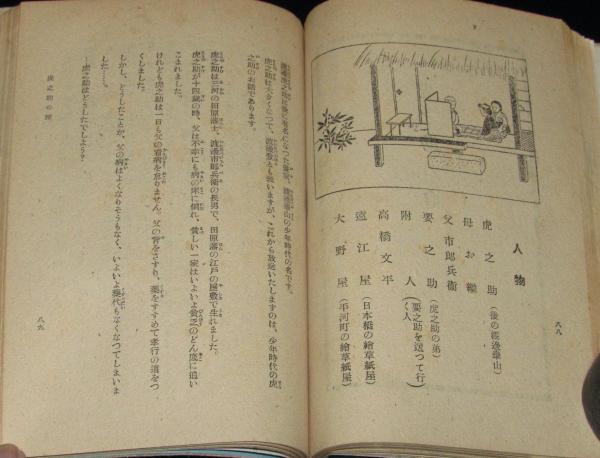 人物
虎之助（後の渡邊崋山）
母お縫
父市郎兵衛
要之助（虎之助の弟）
附人（要之助を送つて行く人）
高橋文平
遠江屋（日本橋の繪草紙屋）
大野屋（平河町の繪草紙屋）
八八
渡邊虎之助は後に有名になつた畫家、渡邊崋山の少年時代の名です。
虎之助は大きくなつて、渡邊登とも言いますが、これから放送いたしますのは、少年時代の虎
之助のお話であります。
虎之助は三河の田原藩士、渡邊市郎兵衛の長男で、田原藩の江戸の屋敷で生れました。
虎之助が十四歳の時、父は不幸にも病の床に倒れ、貧しい一家はいよいよ貧乏のどん底に追い
こまれました。
けれども虎之助は一日も父の看病を怠りません。父の脊をさすり、藥をすすめて孝行の道をつ
くしました。
しかし、どうしたことか、父の病はよくなりそうもなく、いよいよ藥代もなくなつてしまいま
した……。
―虎之助はどうしたでしよう？
虎之助の
八九